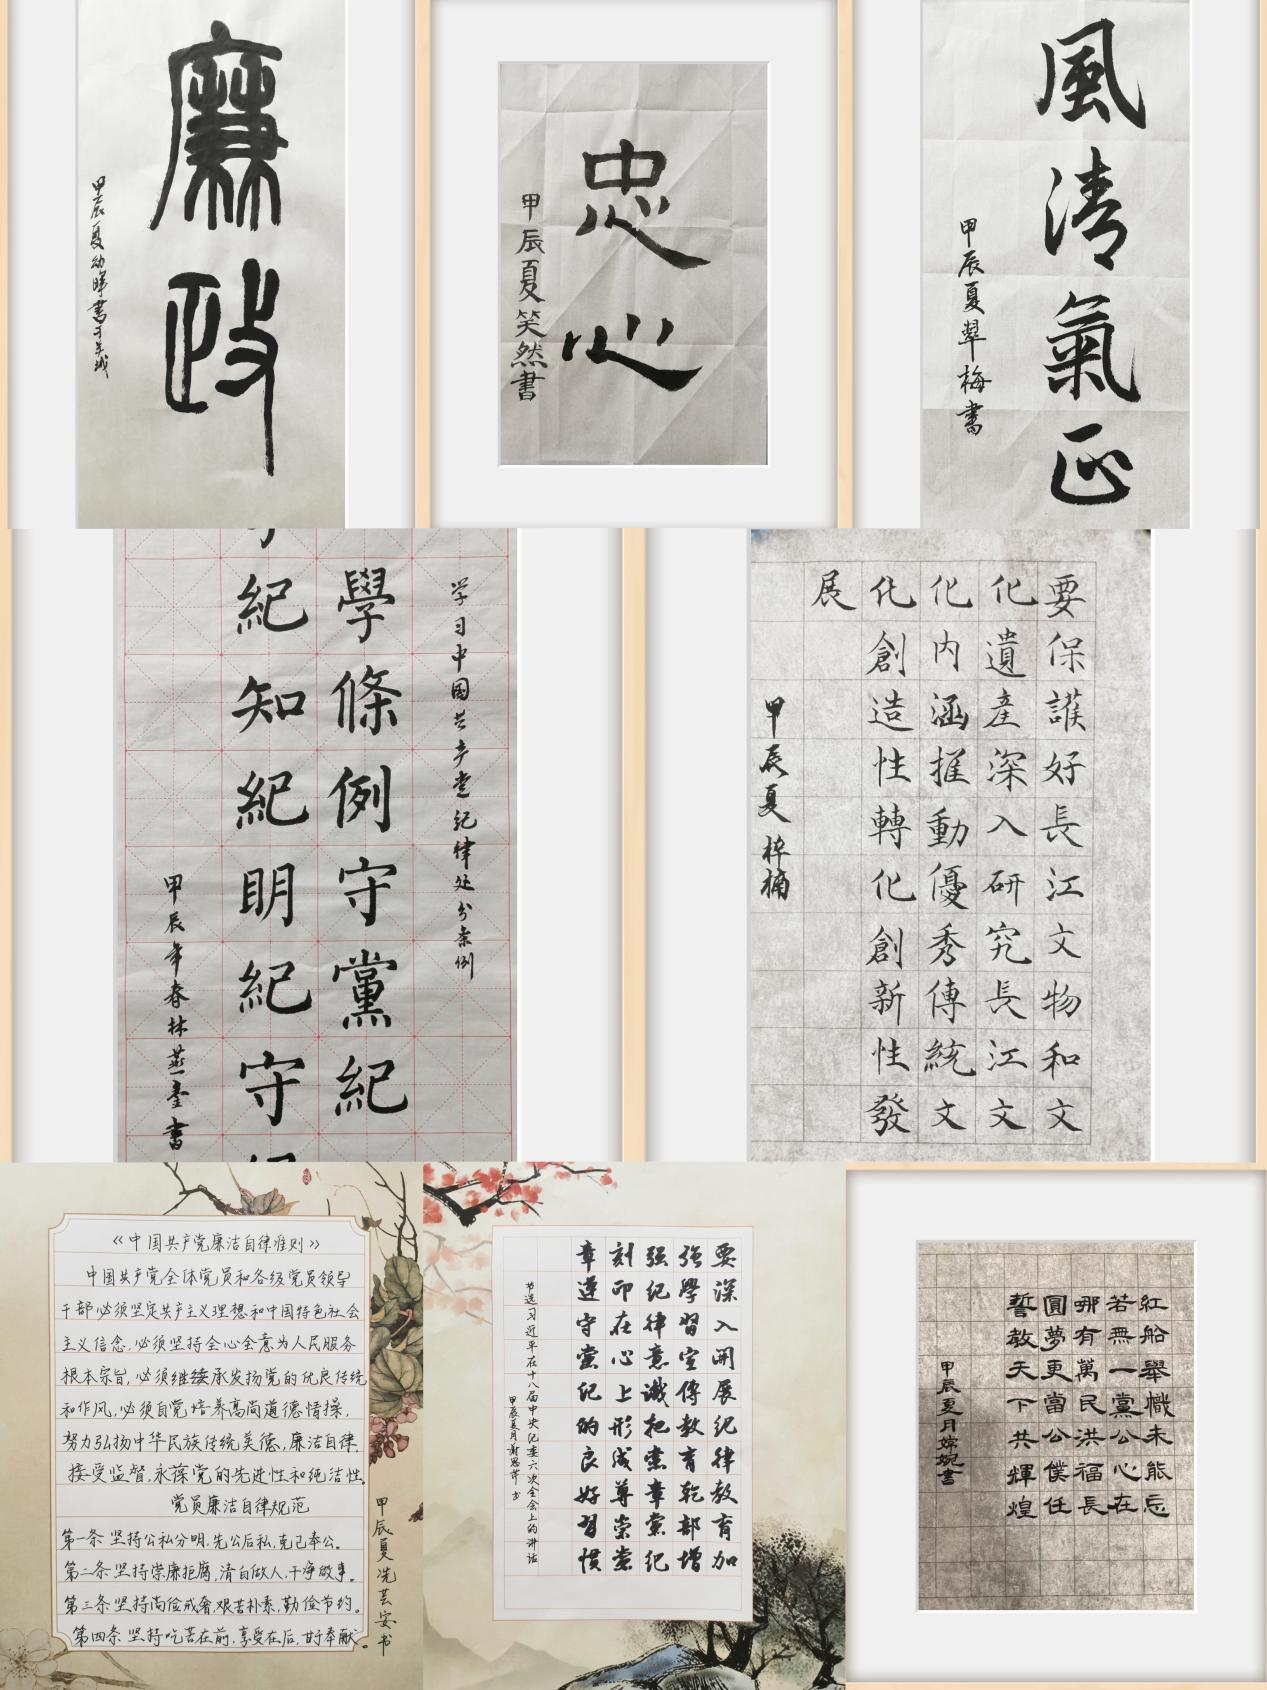 廉政
甲辰夏幼晖書于羊城
忠心
甲辰夏笑然書
風清氣正
甲辰夏翠梅書
学习中国共产党纪律处分条例
學條例守黨紀
紀知紀明紀守
甲辰年春林燕奎書
要保護好長江文物和文
化遺產深入研究長江文
化內涵推動優秀傳統文
化創造性轉化創新性發
展
甲辰夏梓楠
《中国共产党廉洁自律准则》
中国共产党全体党员和各级党员领导
干部必须坚定共产主义理想和中国特色社会
主义信念,必须坚持全心全意为人民服务
根本宗旨,必须继续承发扬党的优良传统
和作风,必须自觉培养高尚道德情操,
努力弘扬中华民族传统美德,廉洁自律
接受监督,永葆党的先进性和纯洁性。
党员廉洁自律规范
第一条 坚持公私分明,先公后私,克己奉公。
第二条 坚持崇廉拒腐,清白做人,干净做事。
第三条 坚持尚俭戒奢,艰苦朴素,勤俭节约。
第四条 坚持吃苦在前,享受在后,甘于奉献。
甲辰夏冼芸安书
要深入開展纪律教育加
强學習宣傳教育乾部增
强纪律意識把党章党纪
刻印在心上形成尊崇党
章遵守党纪的良好習惯
节选习近平在十八届中央纪委六次全会上的讲话
甲辰夏月
紅船舉幟未能忘
若無一黨公心在
哪有萬民洪福長
圓夢更當公僕任
誓教天下共輝煌
甲辰夏月婷婉書